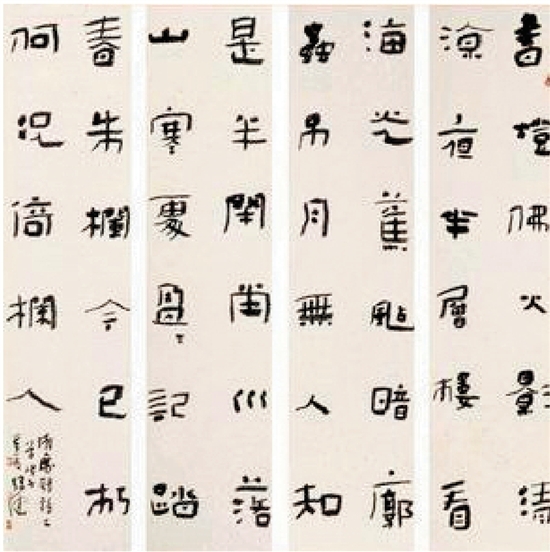 書燈佛火影清
涼夜半層樓看
海光蕉颭暗廊
蟲弔月無人知
是半閒堂水落
山寒處盈〻記踏
春朱欄今已朽
何況倚欄人